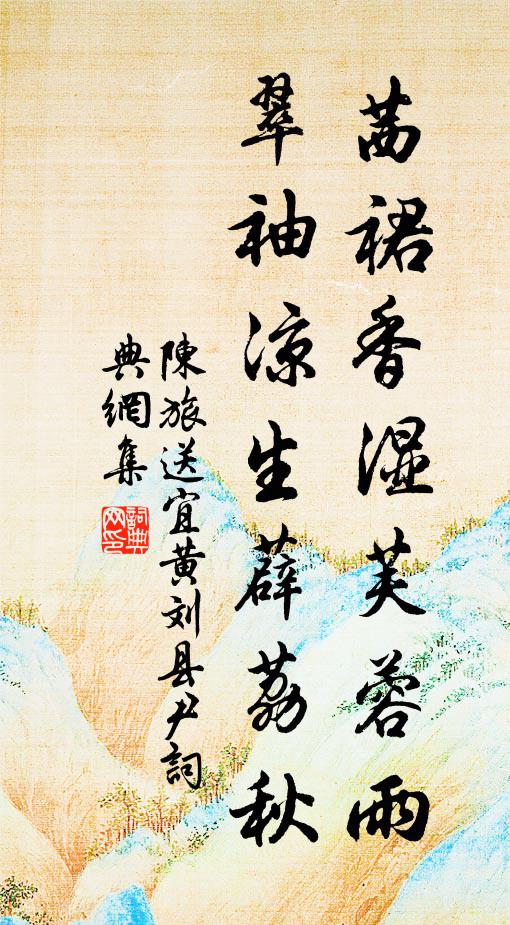 茜裙香湿芙蓉雨
翠袖凉生薜荔秋
陳旅送宜黄刘县尹詞
典網集
詞典网印